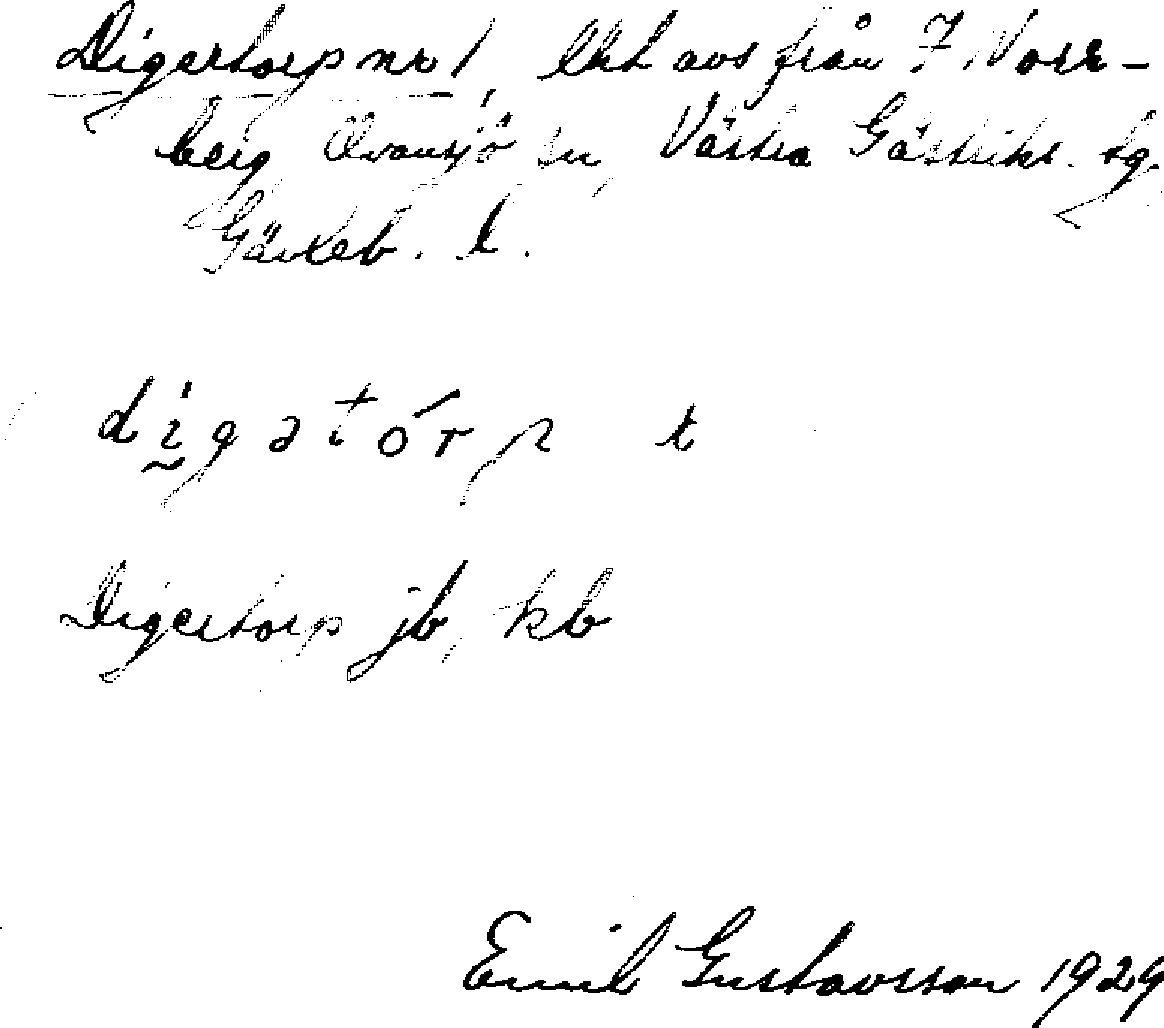 Digertorp nr 1, lht avs från 7 Norr-
berg Ovansjö sn, Västra Gästrikl. tg.
Gävleb. l.
digətórp t
Digertorp jb, kb
Emil Gustavsson 1929